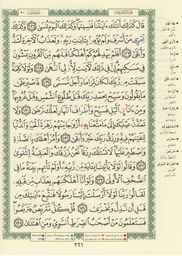 قَالَ كَذَٰلِكَ أَتَتْكَ ءَايَٰتُنَا فَنَسِيتَهَا وَكَذَٰلِكَ ٱلْيَوْمَ تُنسَىٰ وَكَذَٰلِكَ
نَجْزِى مَنْ أَسْرَفَ وَلَمْ يُؤْمِنۢ بِـَٔايَٰتِ رَبِّهِۦ وَلَعَذَابُ ٱلْءَاخِرَةِ أَشَدُّ
وَأَبْقَىٰٓ أَفَلَمْ يَهْدِ لَهُمْ كَمْ أَهْلَكْنَا قَبْلَهُم مِّنَ ٱلْقُرُونِ يَمْشُونَ
فِى مَسَٰكِنِهِمْ إِنَّ فِى ذَٰلِكَ لَءَايَٰتٍ لِّأُو۟لِى ٱلنُّهَىٰ وَلَوْلَا كَلِمَةٌ
سَبَقَتْ مِن رَّبِّكَ لَكَانَ لِزَامًا وَأَجَلٌ مُّسَمًّى فَٱصْبِرْ عَلَىٰ
مَا يَقُولُونَ وَسَبِّحْ بِحَمْدِ رَبِّكَ قَبْلَ طُلُوعِ ٱلشَّمْسِ وَقَبْلَ غُرُوبِهَا
وَمِنْ ءَانَآئِ ٱلَّيْلِ فَسَبِّحْ وَأَطْرَافَ ٱلنَّهَارِ لَعَلَّكَ تَرْضَىٰ
وَلَا تَمُدَّنَّ عَيْنَيْكَ إِلَىٰ مَا مَتَّعْنَا بِهِۦٓ أَزْوَٰجًا مِّنْهُمْ زَهْرَةَ ٱلْحَيَوٰةِ ٱلدُّنْيَا
لِنَفْتِنَهُمْ فِيهِ وَرِزْقُ رَبِّكَ خَيْرٌ وَأَبْقَىٰ وَأْمُرْ أَهْلَكَ بِٱلصَّلَوٰةِ
وَٱصْطَبِرْ عَلَيْهَا لَا نَسْـَٔلُكَ رِزْقًا نَّحْنُ نَرْزُقُكَ وَٱلْعَٰقِبَةُ لِلتَّقْوَىٰ
وَقَالُوا۟ لَوْلَا يَأْتِينَا بِـَٔايَةٍ مِّن رَّبِّهِۦٓ أَوَلَمْ تَأْتِهِم بَيِّنَةُ مَا فِى
ٱلصُّحُفِ ٱلْأُولَىٰ وَلَوْ أَنَّآ أَهْلَكْنَٰهُم بِعَذَابٍ مِّن قَبْلِهِۦ
لَقَالُوا۟ رَبَّنَا لَوْلَآ أَرْسَلْتَ إِلَيْنَا رَسُولًا فَنَتَّبِعَ ءَايَٰتِكَ مِن
قَبْلِ أَن نَّذِلَّ وَنَخْزَىٰ قُلْ كُلٌّ مُّتَرَبِّصٌ فَتَرَبَّصُوا۟
فَسَتَعْلَمُونَ مَنْ أَصْحَٰبُ ٱلصِّرَٰطِ ٱلسَّوِىِّ وَمَنِ ٱهْتَدَىٰ
٣٢١